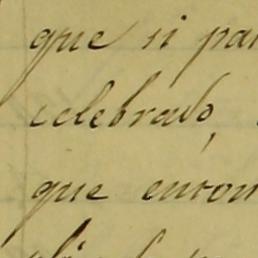 que si par
celebrado,
que enton